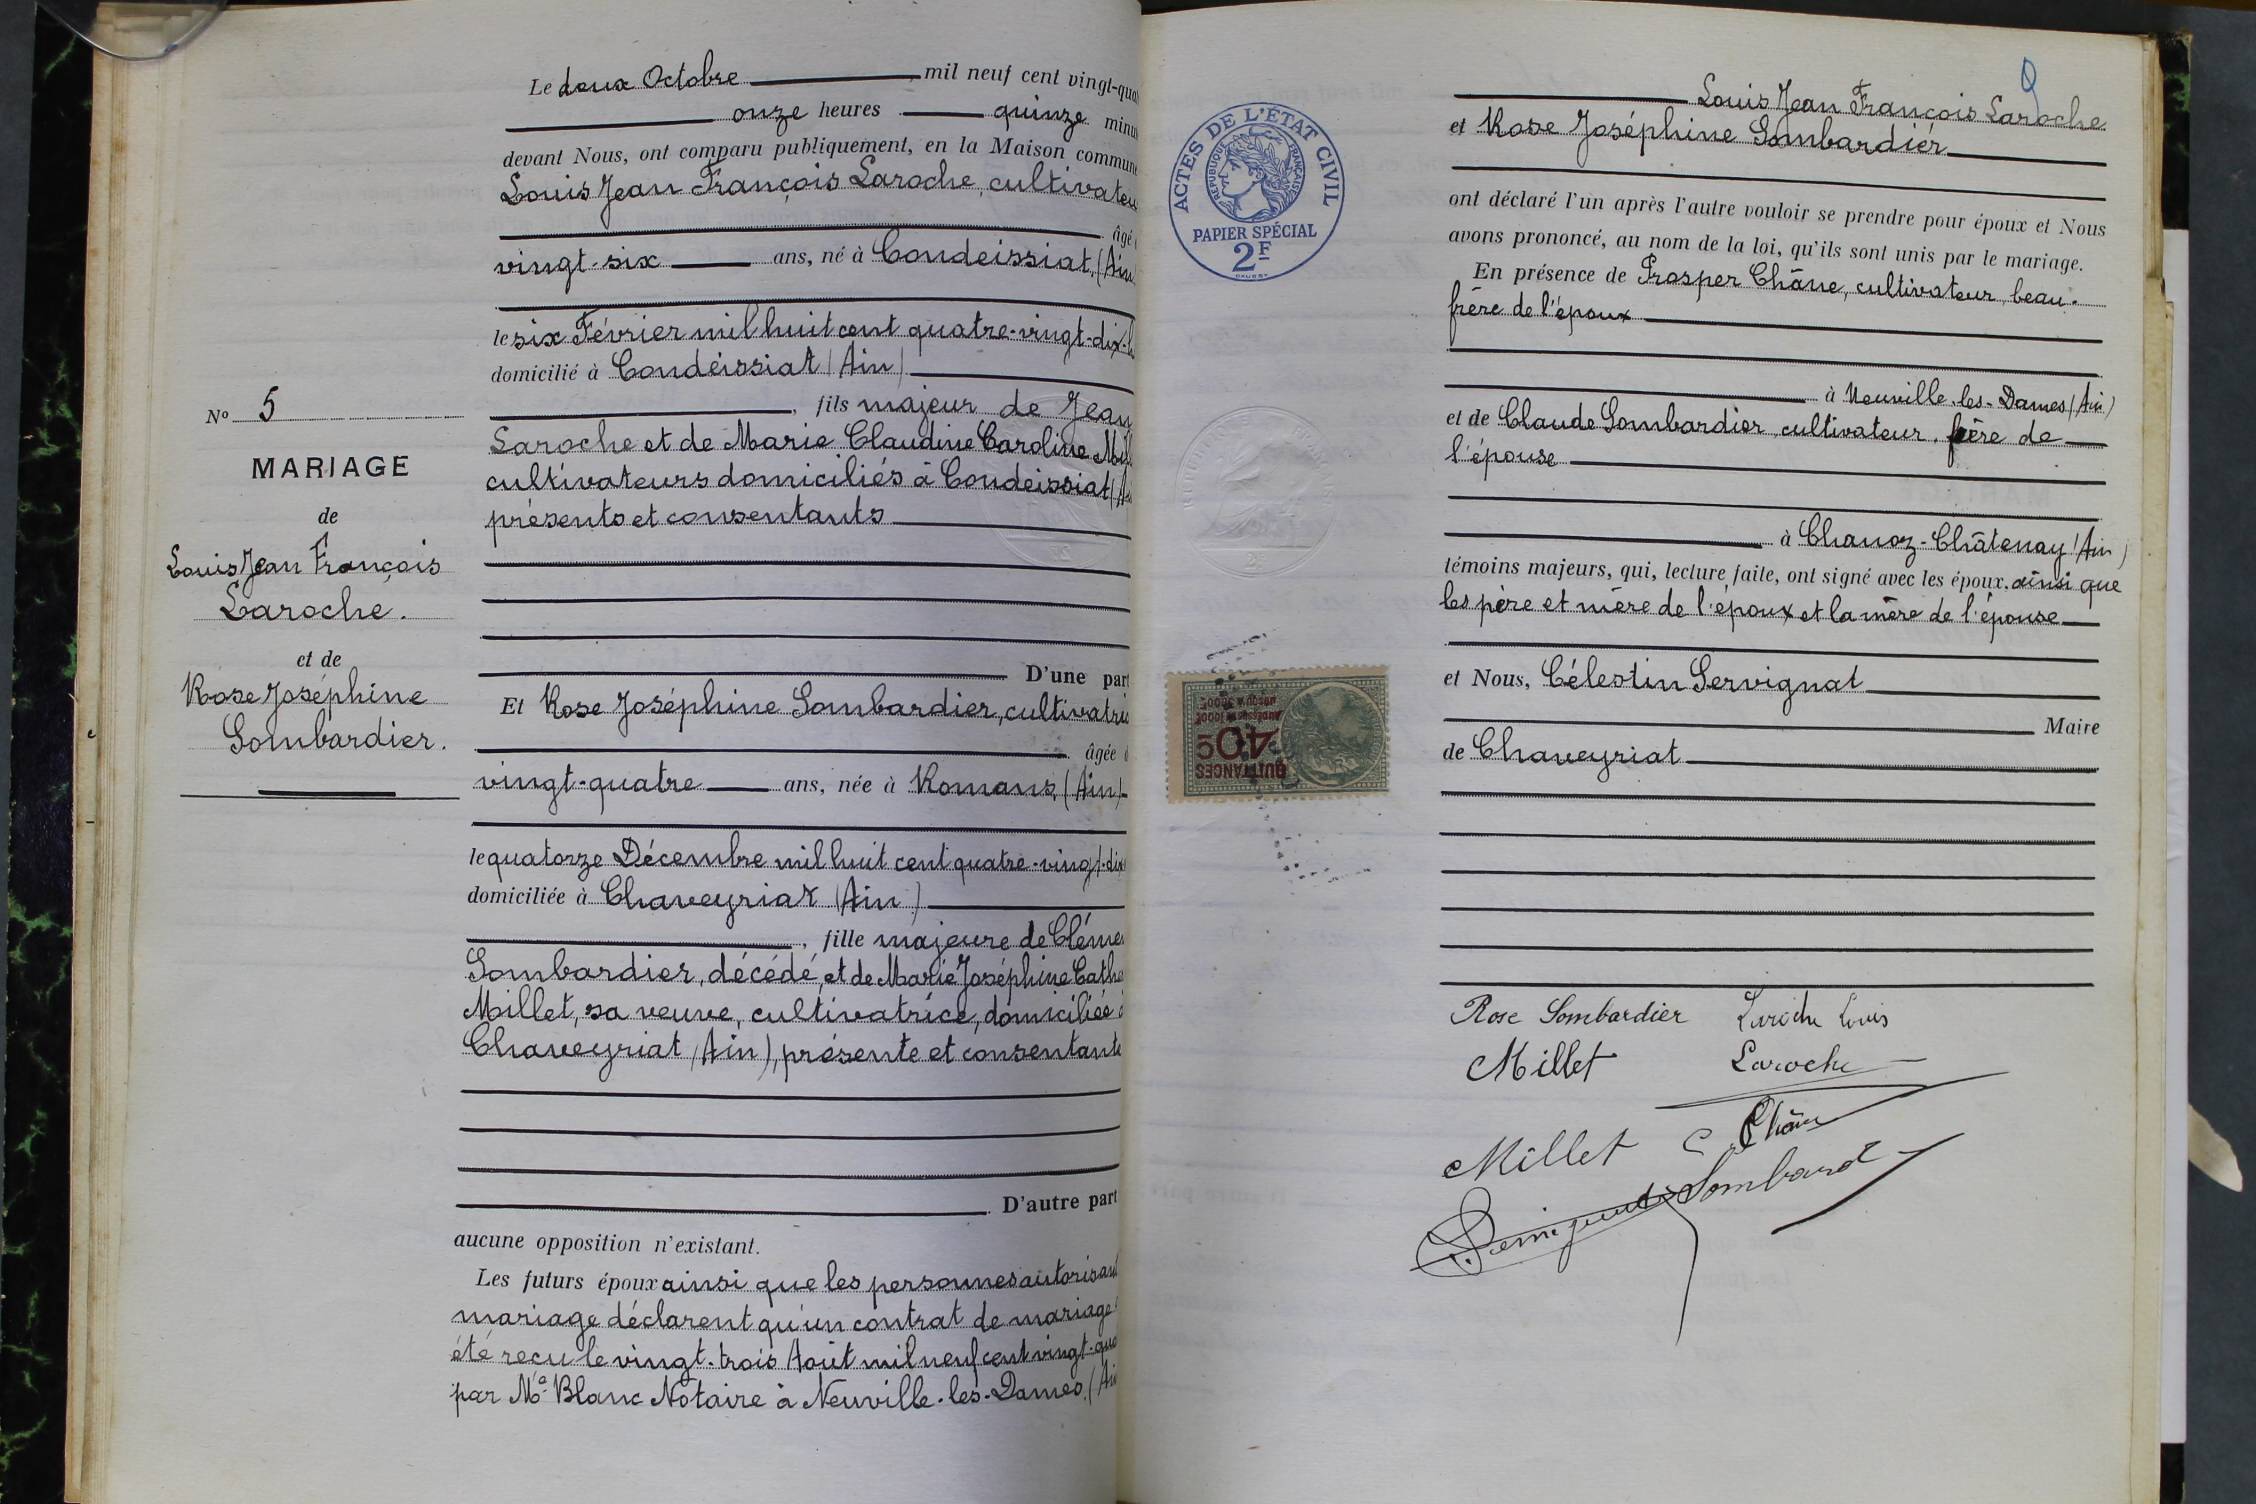 Le deux Octobre mil neuf cent vingt-qua
onze heures quinze minu
devant Nous, ont comparu publiquement, en la Maison commune
Louis Jean François Laroche, cultivateu
âgé
vingt-six ans, né à Condeissiat, (Ain)
le six Février mil huit cent quatre-vingt-dix-
domicilié à Condeissiat (Ain)
N° 5
, fils majeur de Jean
Laroche et de Marie Claudine Caroline Mil
MARIAGE
cultivateurs domiciliés à Condeissiat (A
présents et consentants
de
Louis Jean François
Laroche.
et de
D'une part
Rose Joséphine
Et Rose Joséphine Sombardier, cultivatri
Sombardier.
âgée
vingt-quatre ans, née à Romans, (Ain)
le quatorze Décembre mil huit cent quatre-vingt-dix
domiciliée à Chaveyriat (Ain)
, fille majeure de Cléme
Sombardier, décédé, et de Marie Joséphine Cathe
Millet, sa veuve, cultivatrice, domiciliée à
Chaveyriat (Ain), présente et consentante
D'autre part
aucune opposition n'existant.
Les futurs époux ainsi que les personnes autorisant
mariage déclarent qu'un contrat de mariage
été reçu le vingt-trois Août mil neuf cent vingt-qua
par Me Blanc Notaire à Neuville-les-Dames, (Ain
ACTES DE L'ÉTAT CIVIL
RÉPUBLIQUE FRANÇAISE
PAPIER SPÉCIAL
2F
QUITTANCES
40c
Louis Jean François Laroche
et Rose Joséphine Sombardier
ont déclaré l'un après l'autre vouloir se prendre pour époux et Nous
avons prononcé, au nom de la loi, qu'ils sont unis par le mariage.
En présence de Prosper Châne, cultivateur, beau-
frère de l'époux
à Neuville-les-Dames (Ain)
et de Claude Sombardier cultivateur, frère de
l'épouse
à Chanoz-Châtenay (Ain)
témoins majeurs, qui, lecture faite, ont signé avec les époux, ainsi que
les père et mère de l'époux et la mère de l'épouse
et Nous, Célestin Servignat
Maire
de Chaveyriat
Rose Sombardier Laroche Louis
Millet Laroche
Millet Châne
Sombard